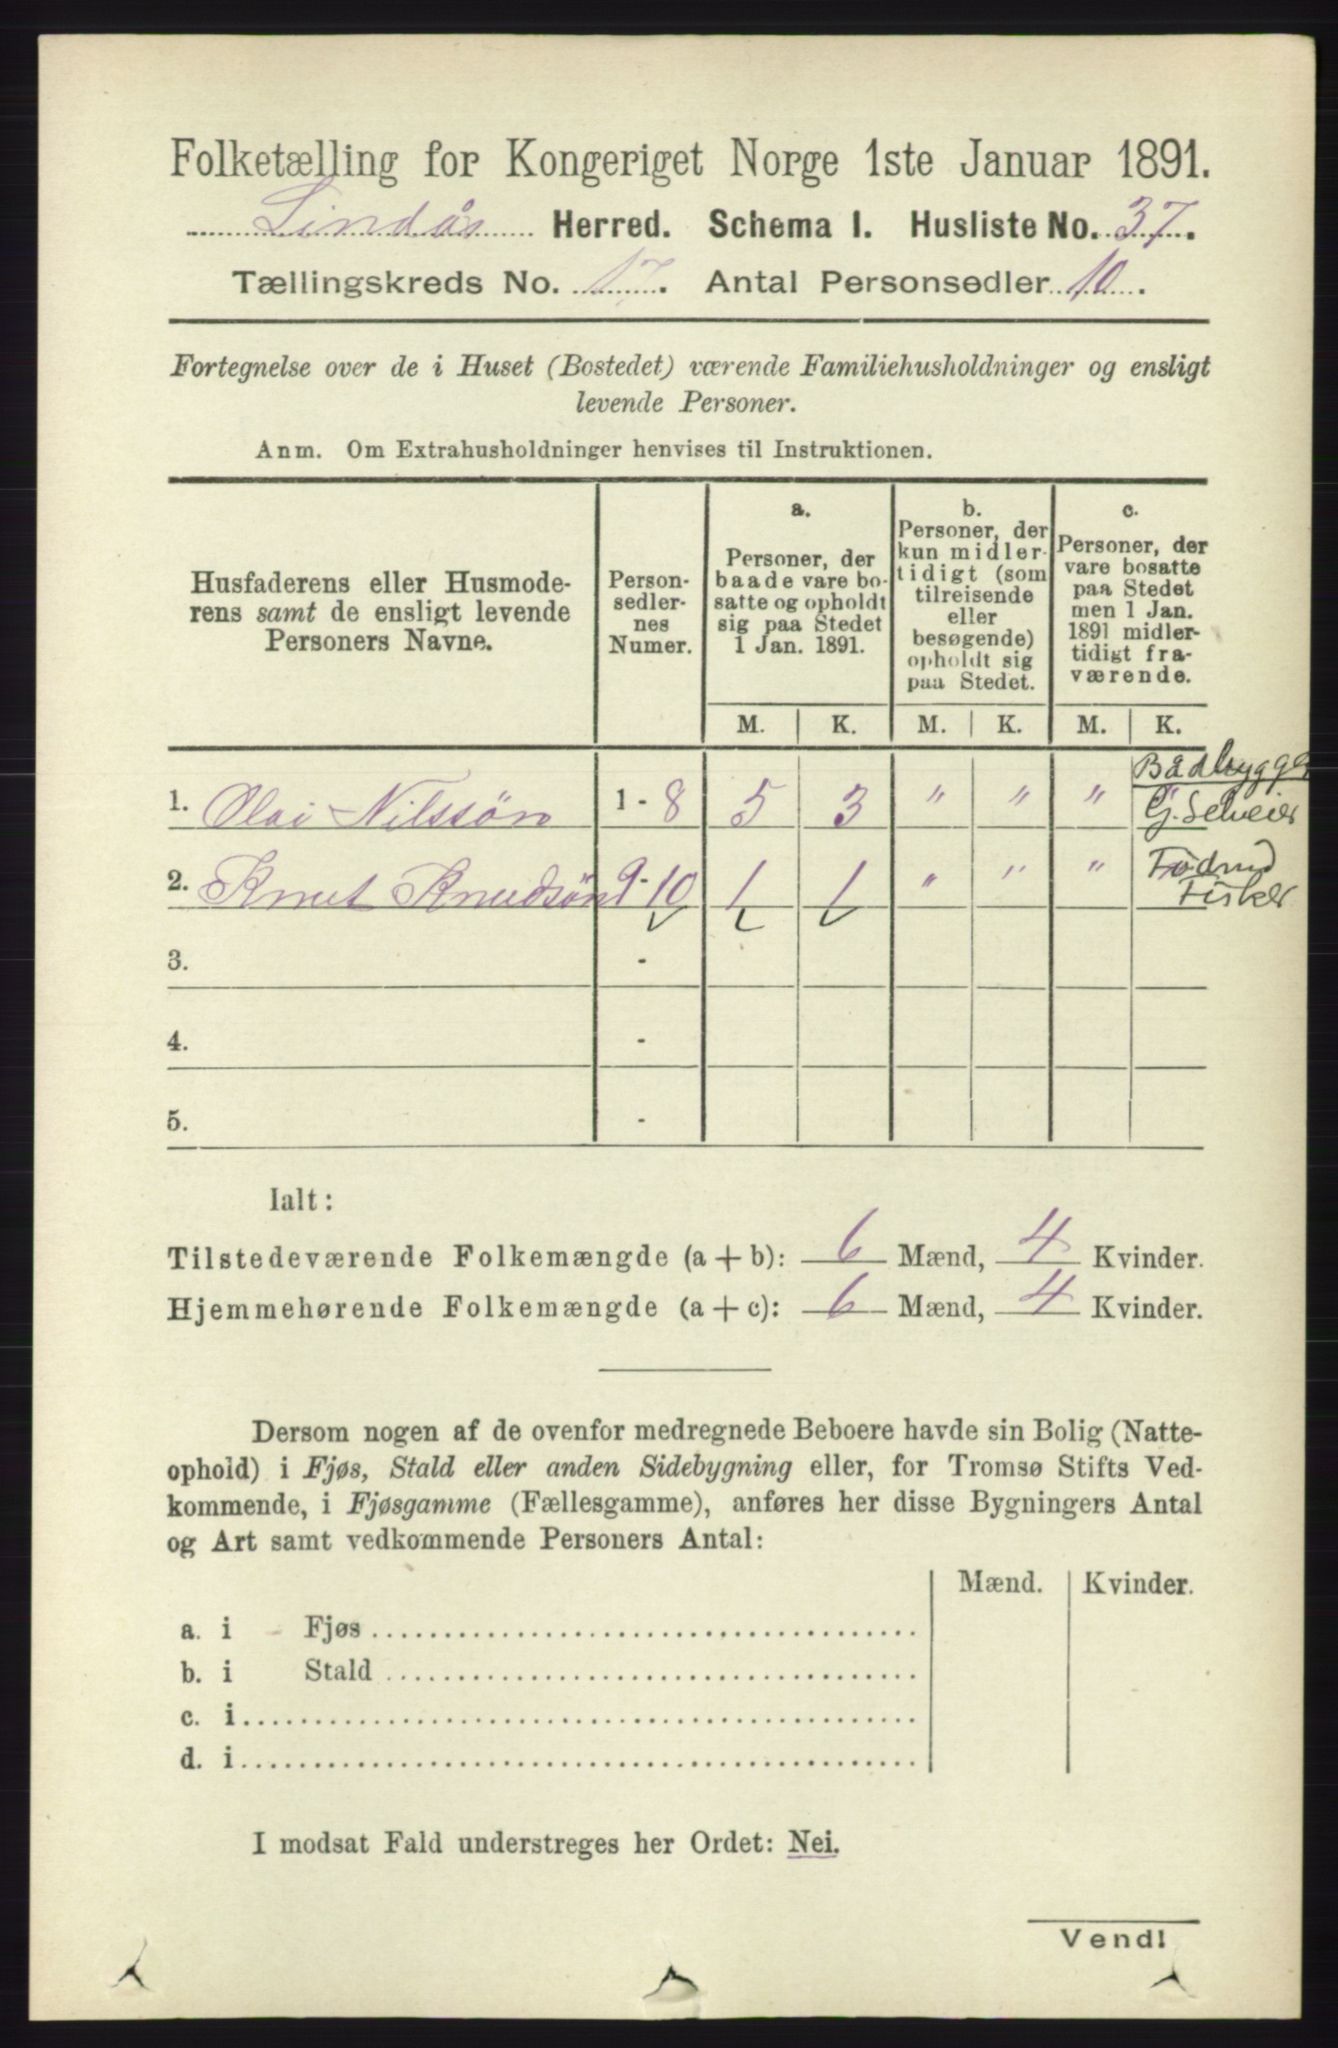 Folketælling for Kongeriget Norge 1ste Januar 1891.
Lindås Herred. Schema I. Husliste No. 37.
Tællingskreds No. 17. Antal Personsedler 10.
Fortegnelse over de i Huset (Bostedet) værende Familiehusholdninger og ensligt
levende Personer.
Anm. Om Extrahusholdninger henvises til Instruktionen.
Husfaderens eller Husmode-
rens samt de ensligt levende
Personers Navne.
Person-
sedler-
nes
Numer.
a.
Personer, der
baade vare bo-
satte og opholdt
sig paa Stedet
1 Jan. 1891.
b.
Personer, der
kun midler-
tidigt (som
tilreisende
eller
besøgende)
opholdt sig
paa Stedet.
c.
Personer, der
vare bosatte
paa Stedet
men 1 Jan.
1891 midler-
tidigt fra-
værende.
M. K. M. K. M. K.
Bådbygger
1. Olai Nilssön 1 - 8 5 3 " " " "
G. Selveier
2. Knut Knudsön 9 - 10 1 1 " " "
Fisker
3. -
4. -
5. -
Ialt:
Tilstedeværende Folkemængde (a + b): 6 Mænd, 4 Kvinder.
Hjemmehørende Folkemængde (a + c): 6 Mænd, 4 Kvinder.
Dersom nogen af de ovenfor medregnede Beboere havde sin Bolig (Natte-
ophold) i Fjøs, Stald eller anden Sidebygning eller, for Tromsø Stifts Ved-
kommende, i Fjøsgamme (Fællesgamme), anføres her disse Bygningers Antal
og Art samt vedkommende Personers Antal:
Mænd. Kvinder.
a. i Fjøs
b. i Stald
c. i
d. i
I modsat Fald understreges her Ordet: Nei.
Vend!